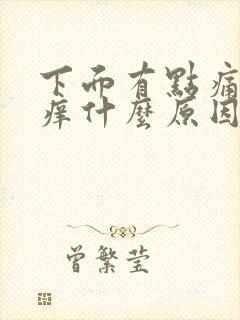 下而有點痛
痒什麼原因
曾繁莹